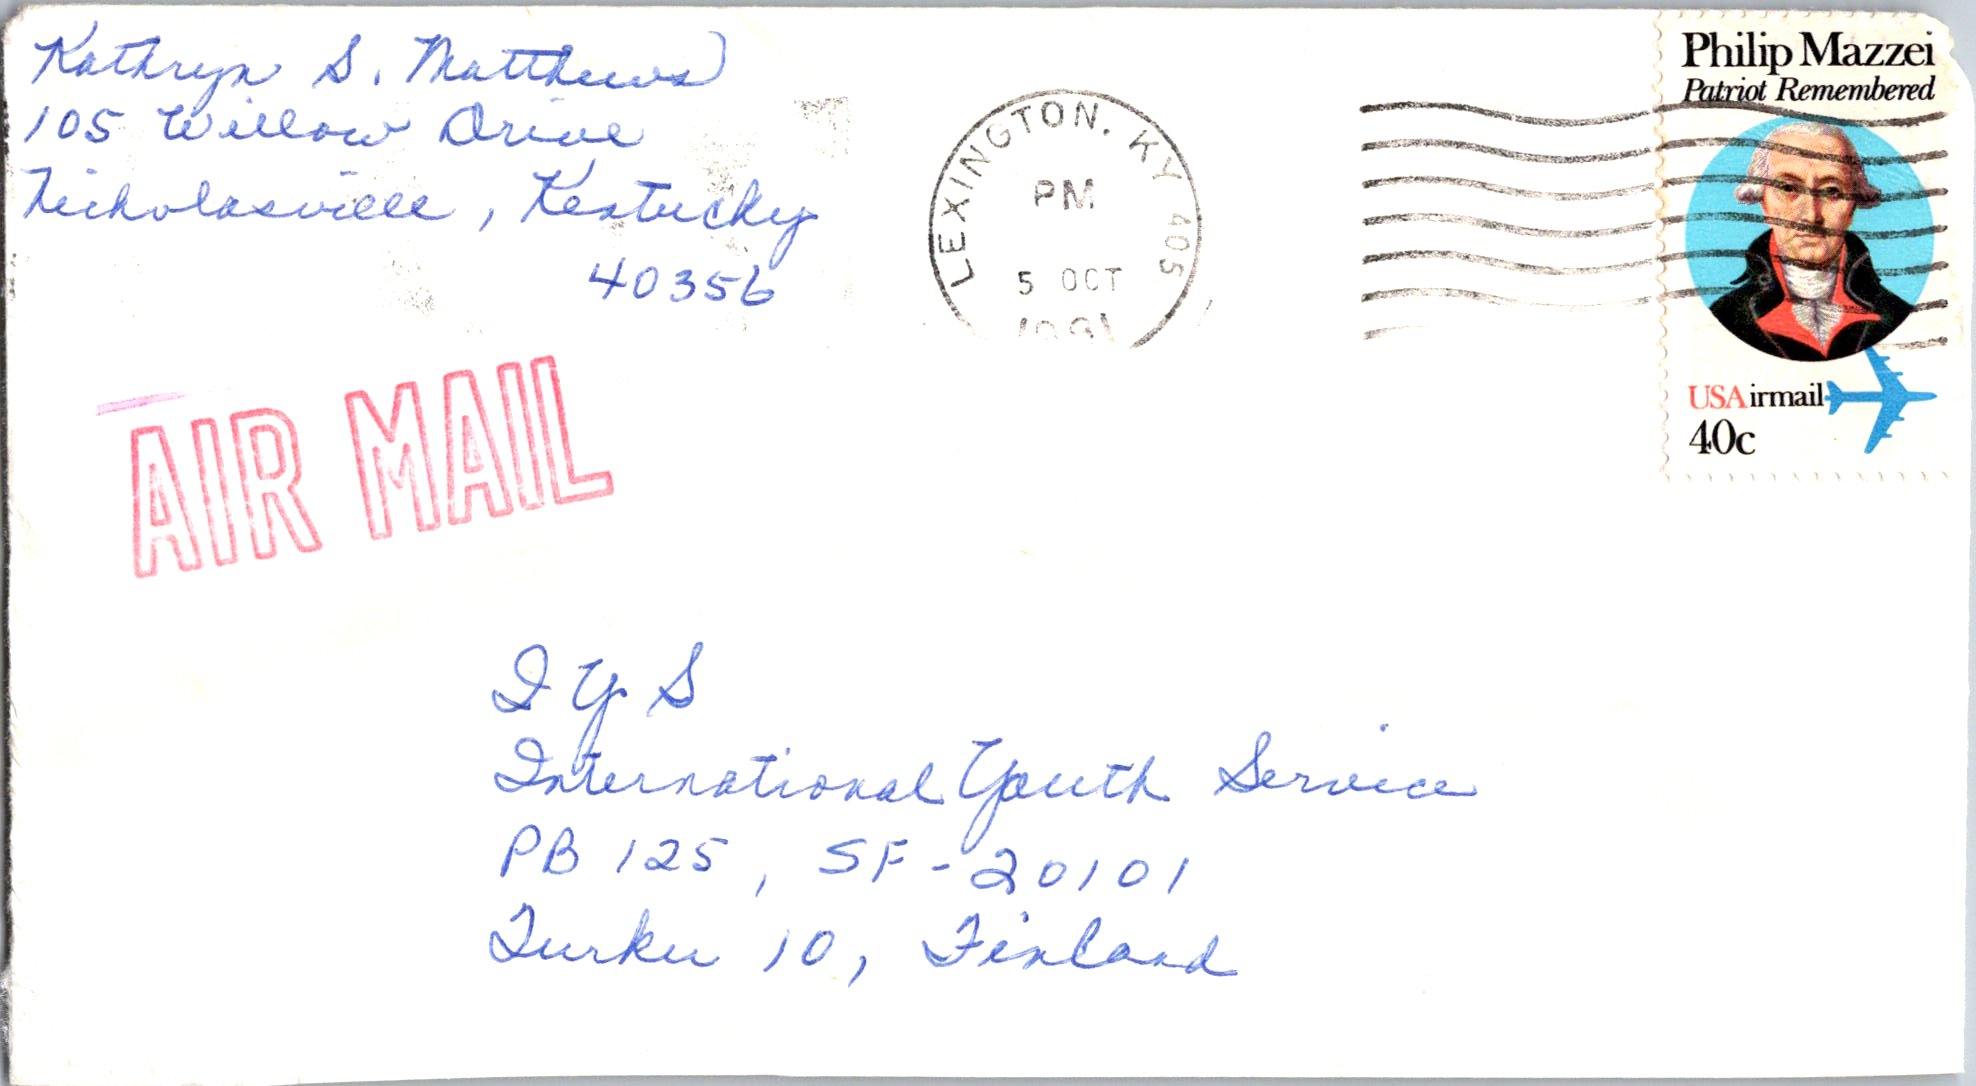 Kathryn S. Matthews
105 Willow Drive
Nicholasville, Kentucky
40356
LEXINGTON, KY 405
PM
5 OCT
Philip Mazzei
Patriot Remembered
USAirmail
40c
AIR MAIL
I Y S
International Youth Service
PB 125, SF-20101
Turku 10, Finland